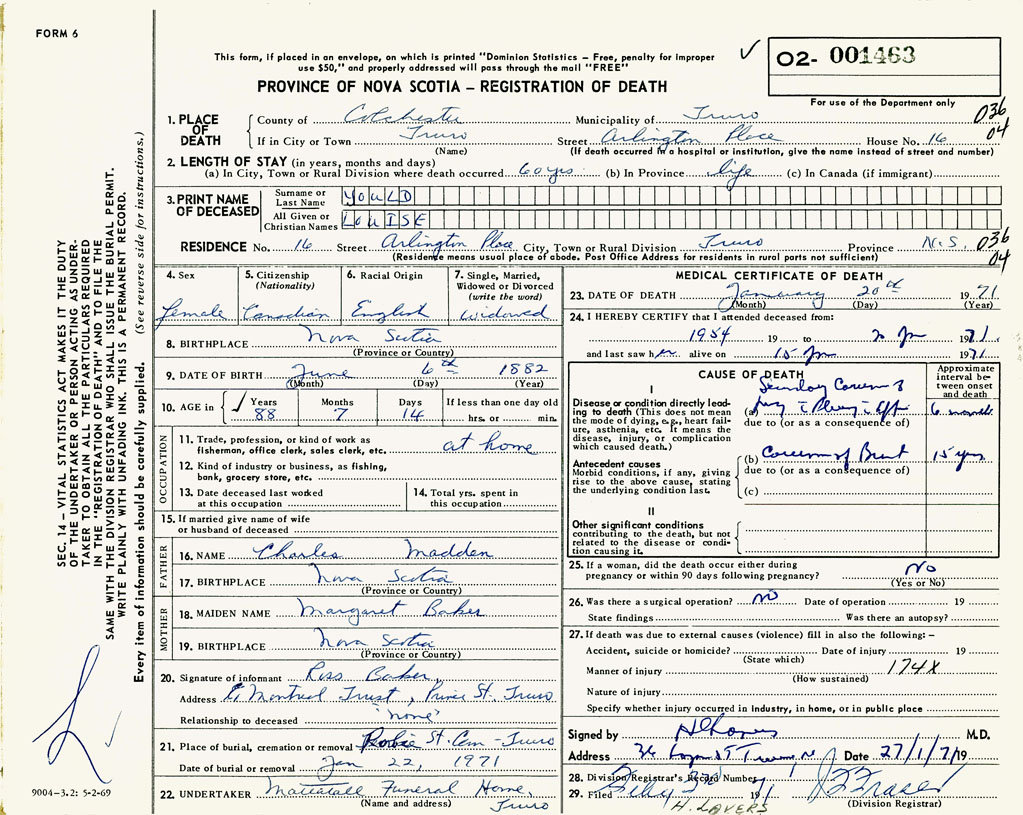 FORM 6
This form, if placed in an envelope, on which is printed "Dominion Statistics – Free, penalty for improper
use $50," and properly addressed will pass through the mail "FREE"
PROVINCE OF NOVA SCOTIA – REGISTRATION OF DEATH
O2- 001463
For use of the Department only
036
04
1. PLACE OF DEATH
County of Colchester Municipality of Truro
If in City or Town Truro Street Arlington Place House No. 16
(Name) (If death occurred in a hospital or institution, give the name instead of street and number)
2. LENGTH OF STAY (in years, months and days)
(a) In City, Town or Rural Division where death occurred 60 yrs. (b) In Province life (c) In Canada (if immigrant)
3. PRINT NAME OF DECEASED
Surname or Last Name YOULD
All Given or Christian Names LOUISE
RESIDENCE No. 16 Street Arlington Place City, Town or Rural Division Truro Province N.S. 036
(Residence means usual place of abode. Post Office Address for residents in rural parts not sufficient) 04
4. Sex
Female
5. Citizenship (Nationality)
Canadian
6. Racial Origin
English
7. Single, Married, Widowed or Divorced (write the word)
Widowed
8. BIRTHPLACE Nova Scotia
(Province or Country)
9. DATE OF BIRTH June 6th 1882
(Month) (Day) (Year)
10. AGE in
Years 88
Months 7
Days 14
If less than one day old
hrs. or min.
OCCUPATION
11. Trade, profession, or kind of work as
fisherman, office clerk, sales clerk, etc. at home
12. Kind of industry or business, as fishing,
bank, grocery store, etc.
13. Date deceased last worked
at this occupation
14. Total yrs. spent in
this occupation
15. If married give name of wife
or husband of deceased
FATHER
16. NAME Charles Madden
17. BIRTHPLACE Nova Scotia
(Province or Country)
MOTHER
18. MAIDEN NAME Margaret Baker
19. BIRTHPLACE Nova Scotia
(Province or Country)
20. Signature of informant Ross Baker
Address Montreal Trust, Prince St. Truro
Relationship to deceased "none"
21. Place of burial, cremation or removal Robie St. Cem - Truro
Date of burial or removal Jan 22, 1971
22. UNDERTAKER Mattatall Funeral Home,
(Name and address) Truro
MEDICAL CERTIFICATE OF DEATH
23. DATE OF DEATH January 20th 1971
(Month) (Day) (Year)
24. I HEREBY CERTIFY that I attended deceased from:
1954 19 to 20 Jan 1971
and last saw her alive on 15 Jan 1971
CAUSE OF DEATH
Approximate interval between onset and death
I
Disease or condition directly leading to death (This does not mean the mode of dying, e.g., heart failure, asthenia, etc. It means the disease, injury, or complication which caused death.)
(a) 6 months
due to (or as a consequence of)
Antecedent causes
Morbid conditions, if any, giving rise to the above cause, stating the underlying condition last.
(b) 15 yrs
due to (or as a consequence of)
(c)
II
Other significant conditions
contributing to the death, but not related to the disease or condition causing it.
25. If a woman, did the death occur either during
pregnancy or within 90 days following pregnancy? No
(Yes or No)
26. Was there a surgical operation? No Date of operation 19
State findings Was there an autopsy?
27. If death was due to external causes (violence) fill in also the following: –
Accident, suicide or homicide? Date of injury 19
(State which)
Manner of injury 174X
(How sustained)
Nature of injury
Specify whether injury occurred in industry, in home, or in public place
Signed by M.D.
Address 36 Date 27/1/71 19
28. Division Registrar's Record Number
29. Filed 1971
(Division Registrar)
H. LAVERS
SEC. 14 – VITAL STATISTICS ACT MAKES IT THE DUTY
OF THE UNDERTAKER OR PERSON ACTING AS UNDER-
TAKER TO OBTAIN ALL THE PARTICULARS REQUIRED
IN THE "REGISTRATION OF DEATH" AND TO FILE THE
SAME WITH THE DIVISION REGISTRAR WHO SHALL ISSUE THE BURIAL PERMIT.
WRITE PLAINLY WITH UNFADING INK. THIS IS A PERMANENT RECORD.
Every item of information should be carefully supplied. (See reverse side for instructions.)
9004-3.2: 5-2-69